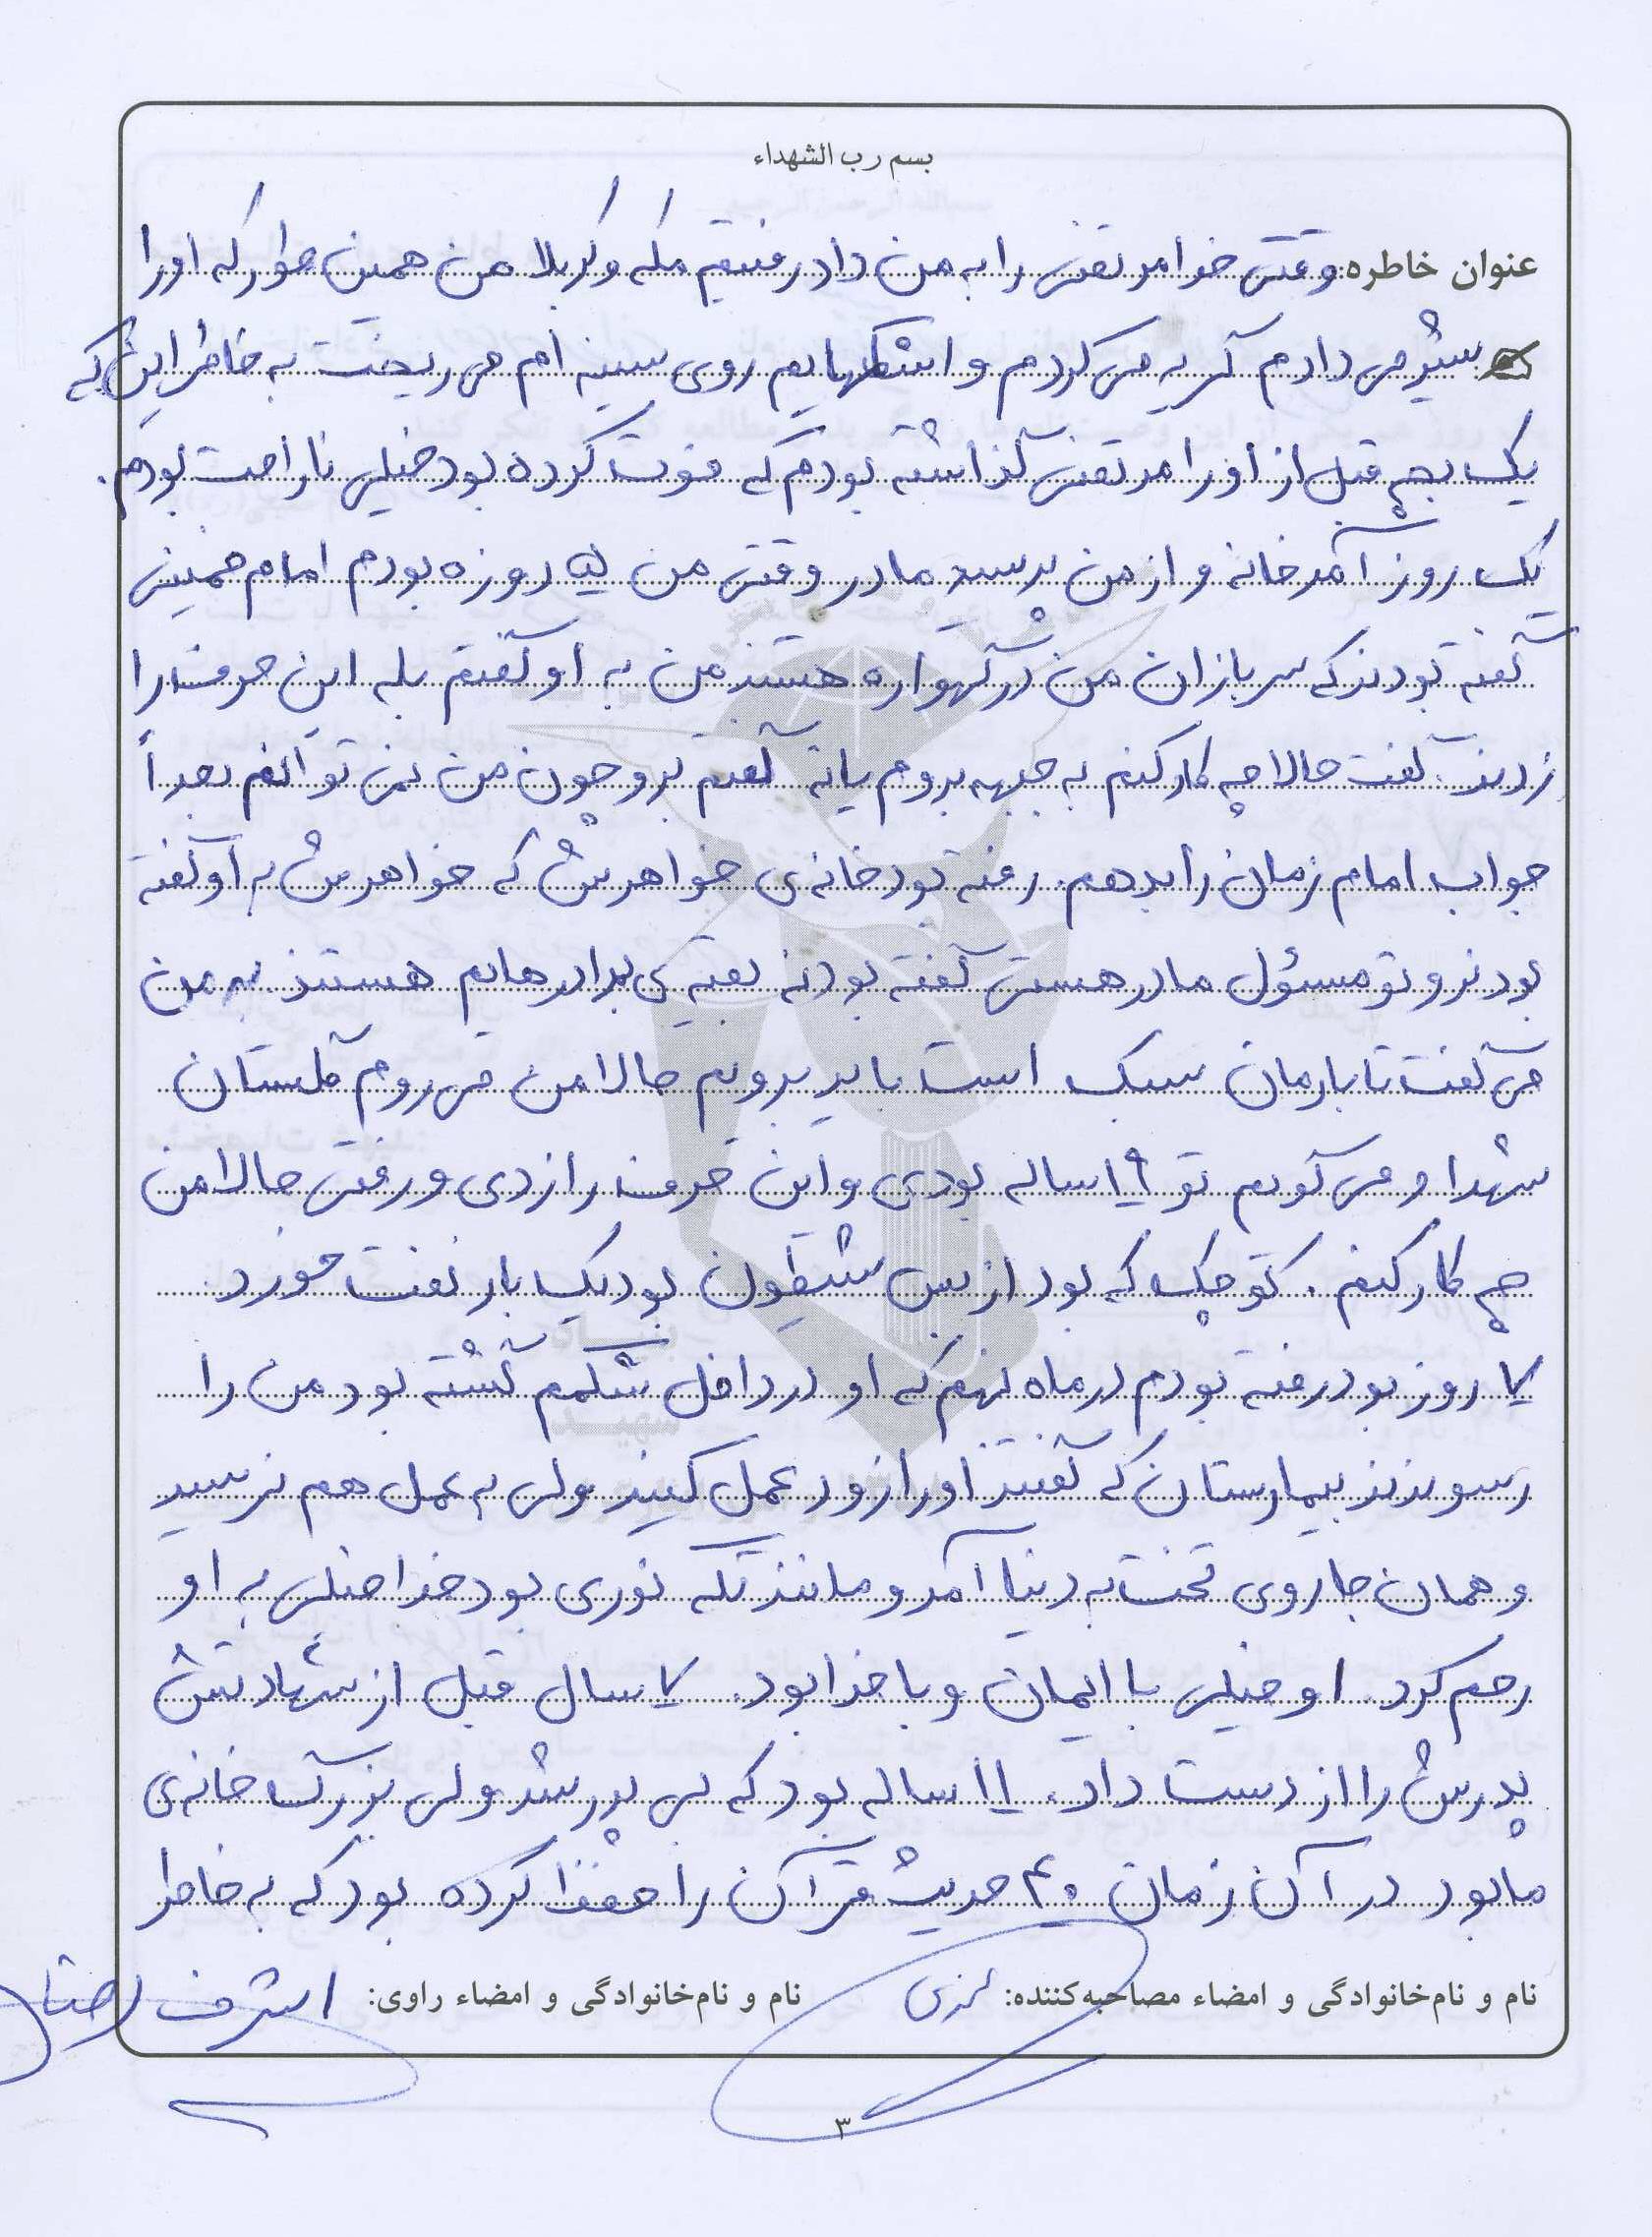 بسم رب الشهداء
عنوان خاطره: وقتی خدا مرتضی را به من داد رفتیم مکه و کربلا من همین طور که او را
شیر می دادم گریه می کردم و اشکهایم روی سینه ام می ریخت به خاطر این که
یک بچه قبل از او را مرتضی گذاشته بودم که فوت کرده بود خیلی ناراحت بودم.
یک روز آمد خانه و از من پرسید مادر وقتی من ۵ روزه بودم امام خمینی
گفته بودند که سربازان من در گهواره هستند من به او گفتم بله این حرف را
زدند. گفت حالا چه کار کنم به جبهه بروم یا نه گفتم برو چون من نمی توانم بعداً
جواب امام زمان را بدهم. رفته بود خانه ی خواهرش که خواهرش به او گفته
بود نرو تو مسئول مادر هستی گفته بود نه بقیه ی برادرهایم هستند به من
می گفت تا بارمان سبک است باید برویم حالا من می روم گلستان
شهدا و می گویم تو ۱۹ ساله بودی و این حرف را زدی و رفتی حالا من
چه کار کنم. کوچک که بود از بس شیطون بود یک بار نفت خورد.
۷ روز بود رفته بودم در ماه نهم که او در داخل شکمم گشته بود من را
رسوندند بیمارستان که گفتند او را زود عمل کنید ولی به عمل هم نرسید
و همان جا روی تخت به دنیا آمد و مانند تکه نوری بود خدا خیلی به او
رحم کرد. او خیلی با ایمان و با خدا بود. ۷ سال قبل از شهادتش
پدرش را از دست داد. ۱۱ ساله بود که بی پدر شد ولی بزرگ خانه ی
ما بود در آن زمان ۴۰ حدیث قرآن را حفظ کرده بود که به خاطر
نام و نام‌خانوادگی و امضاء مصاحبه‌کننده: نام و نام‌خانوادگی و امضاء راوی: اشرف
۳